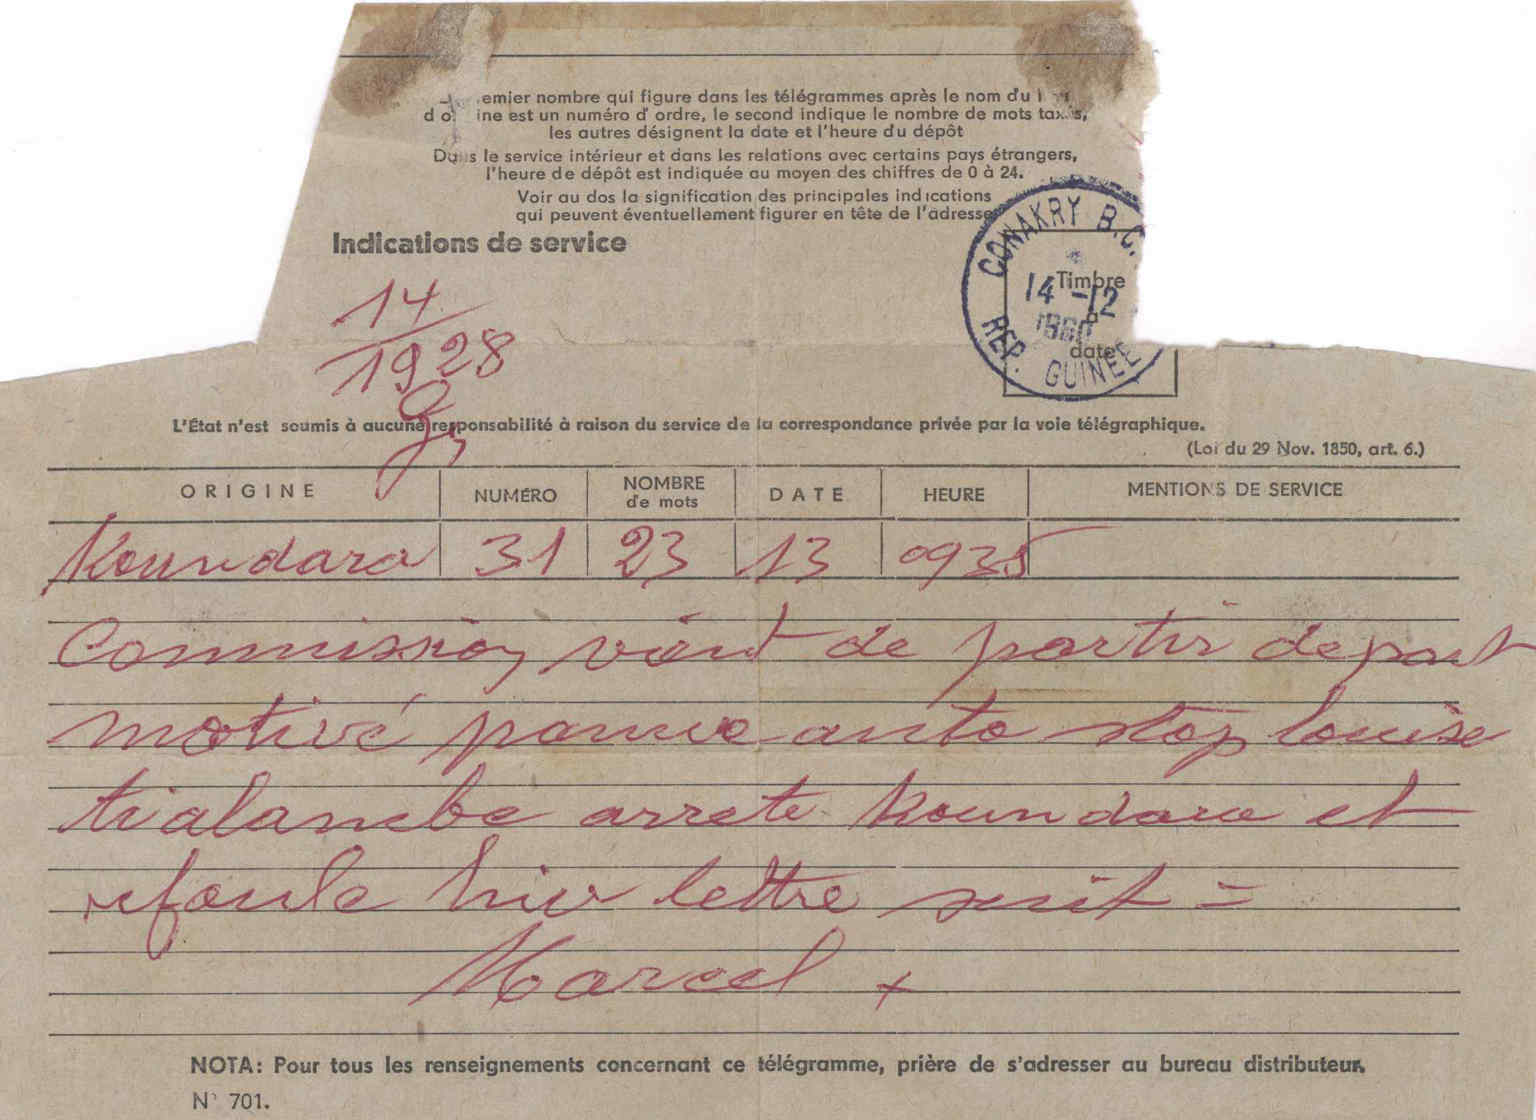 emier nombre qui figure dans les télégrammes après le nom du
ine est un numéro d'ordre, le second indique le nombre de mots taxés,
les autres désignent la date et l'heure du dépôt
Dans le service intérieur et dans les relations avec certains pays étrangers,
l'heure de dépôt est indiquée au moyen des chiffres de 0 à 24.
Voir au dos la signification des principales indications
qui peuvent éventuellement figurer en tête de l'adresse
Indications de service
CONAKRY B.C.
14-12
1960
REP. GUINÉE
Timbre
à
date
14
1928
L'État n'est soumis à aucune responsabilité à raison du service de la correspondance privée par la voie télégraphique.
(Loi du 29 Nov. 1850, art. 6.)
ORIGINE NUMÉRO NOMBRE de mots DATE HEURE MENTIONS DE SERVICE
Koundara 31 23 13 0935
Commission vient de partir depart
motivé panne auto stop louise
tialambe arrete Koundara et
refoule hier lettre suit =
Marcel +
NOTA: Pour tous les renseignements concernant ce télégramme, prière de s'adresser au bureau distributeur.
N° 701.